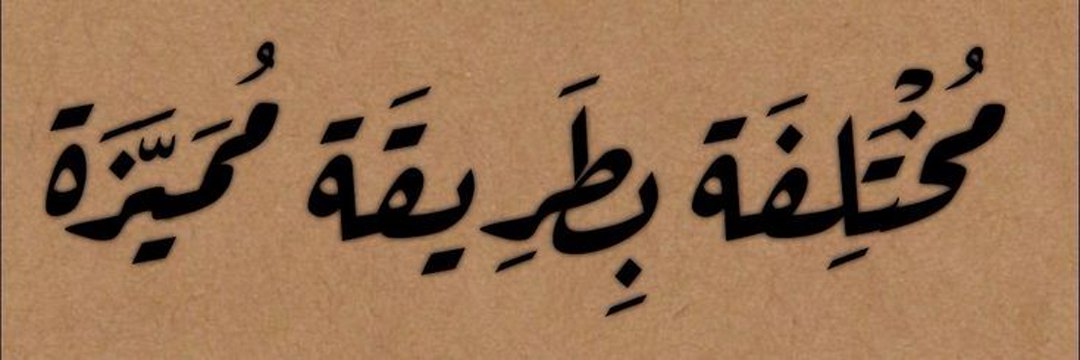 مُخْتَلِفَة بِطَرِيقَة مُمَيَّزَة